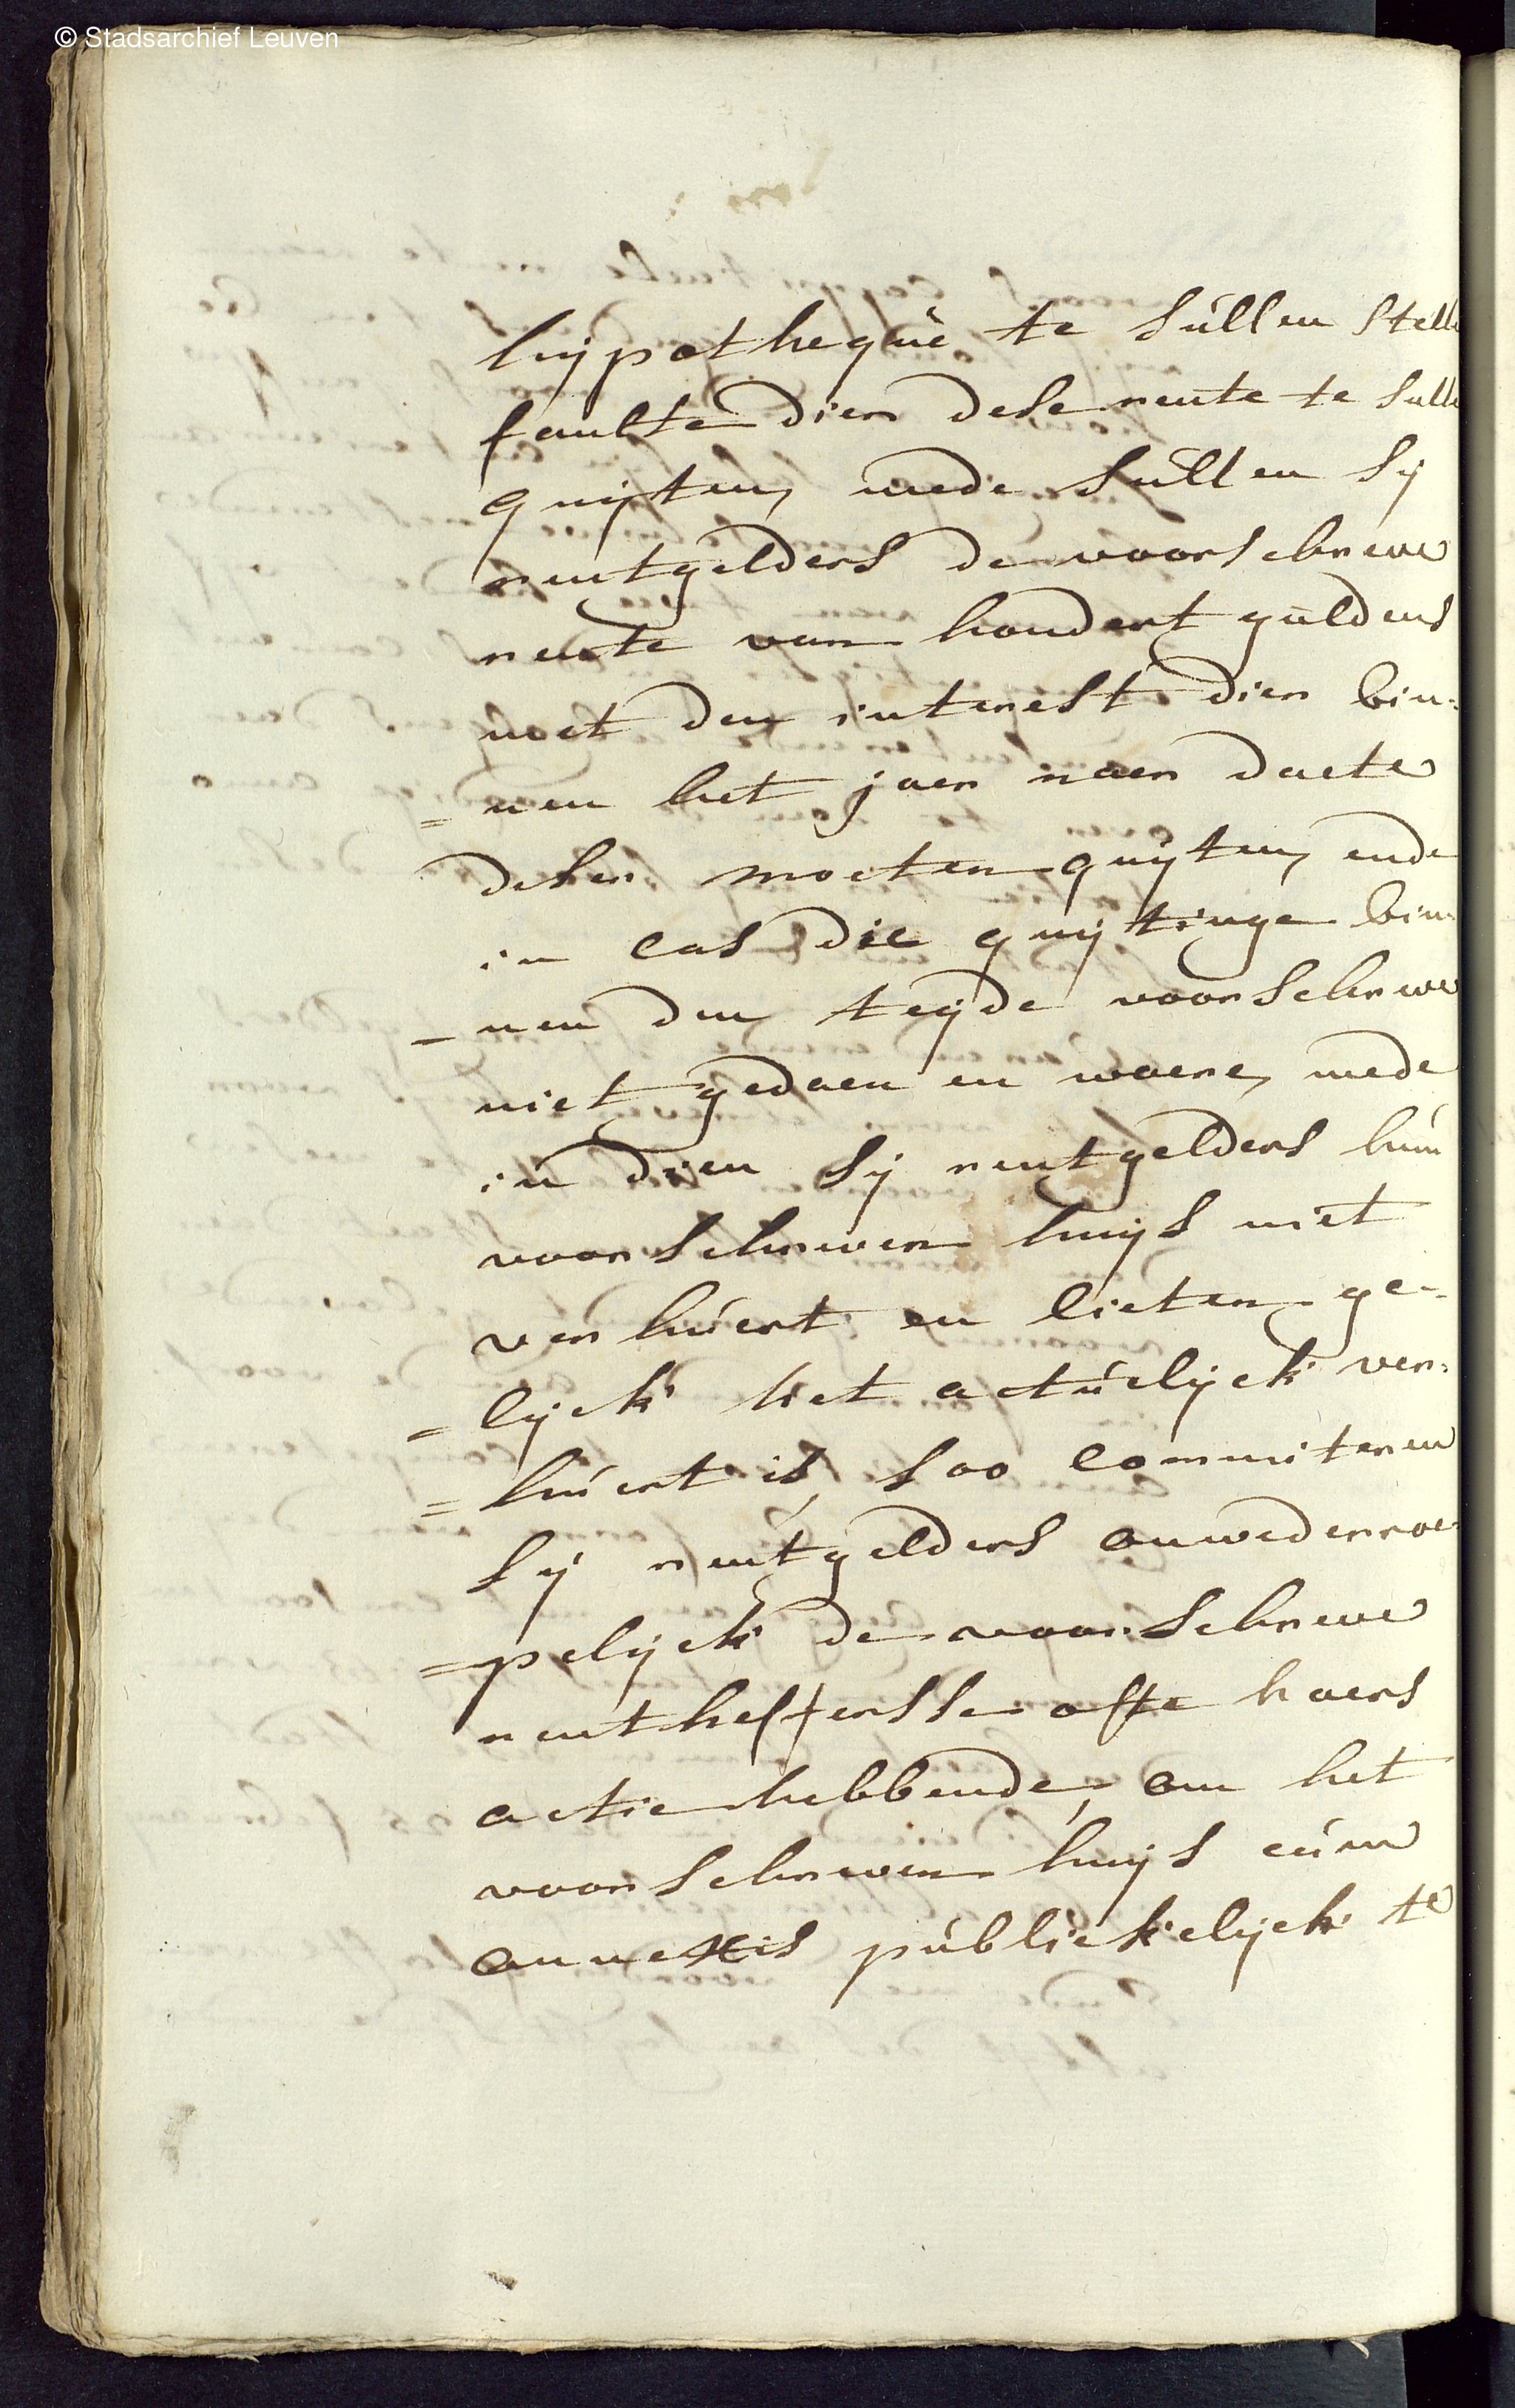 © Stadsarchief Leuven
hijpotheque te sullen stelle
faulte dier dese rente te sulle
quijten, mede sullen sij
rentgelders de voorschreve
rente van hondert guldens
met den interest dier bin:
= nen het jaer naer daete
deser moeten quijten, ende
in cas die quijtinge bin:
- nen den teyde voorschreve
niet gedaen en waere, mede
in dien sij rentgelders hun
voorschreven huijs niet
verhuert en lieten ge-
= lijck het actuelijck ver:
= huert is, soo committeren
sij rentgelders onwederroe:
= pelijck de voorschreve
rentheffersse ofte haers
actie hebbende, om het
voorschreven huijs cum
annexis publickelijck te